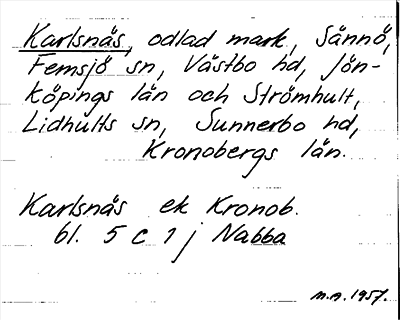 Karlsnäs, odlad mark, Sännö,
Femsjö sn, Västbo hd, Jön-
köpings län och Strömhult,
Lidhults sn, Sunnerbo hd,
Kronobergs län.
Karlsnäs ek Kronob.
bl. 5 C 1 j Nabba
M.A. 1957.